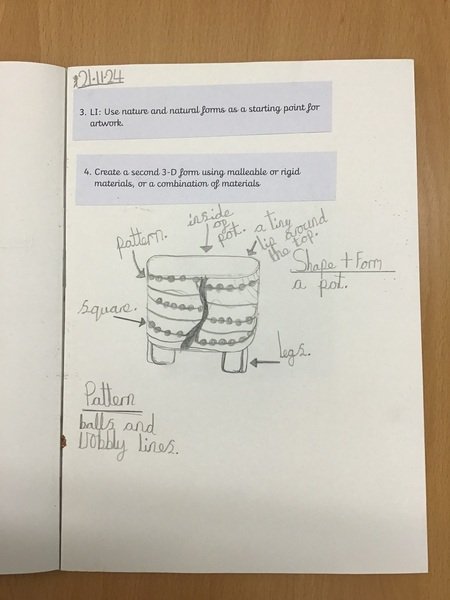 21.11.24
3. LI: Use nature and natural forms as a starting point for
artwork.
4. Create a second 3-D form using malleable or rigid
materials, or a combination of materials
pattern.
inside
of
pot.
a tiny
lip around
the top.
Shape + Form
a pot.
square.
legs.
Pattern
balls and
wobbly lines.